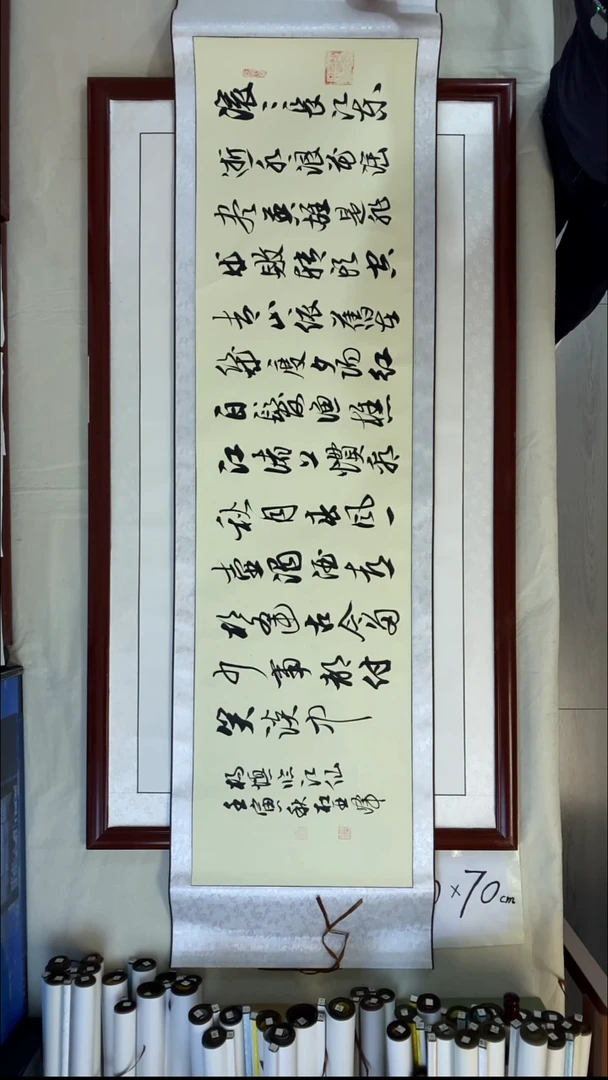 滚〻長江东
逝水浪花淘
尽英雄是非
成敗转头空
青山依舊在
幾度夕阳红
白髮渔樵
江渚上惯看
秋月春风一
壶濁酒喜
相逢古今多
少事都付
笑谈中
杨慎临江仙
壬寅秋
×70cm